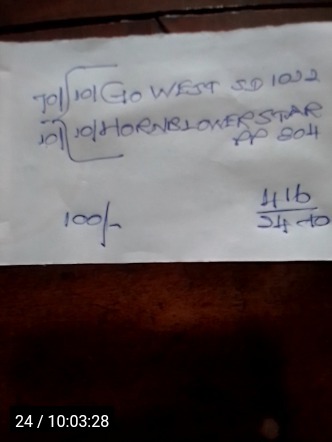 701 101 GO WEST SD 1022
101 101 HORNBLOWER STAR
PP 804
100/-
416
24 10
24 / 10:03:28